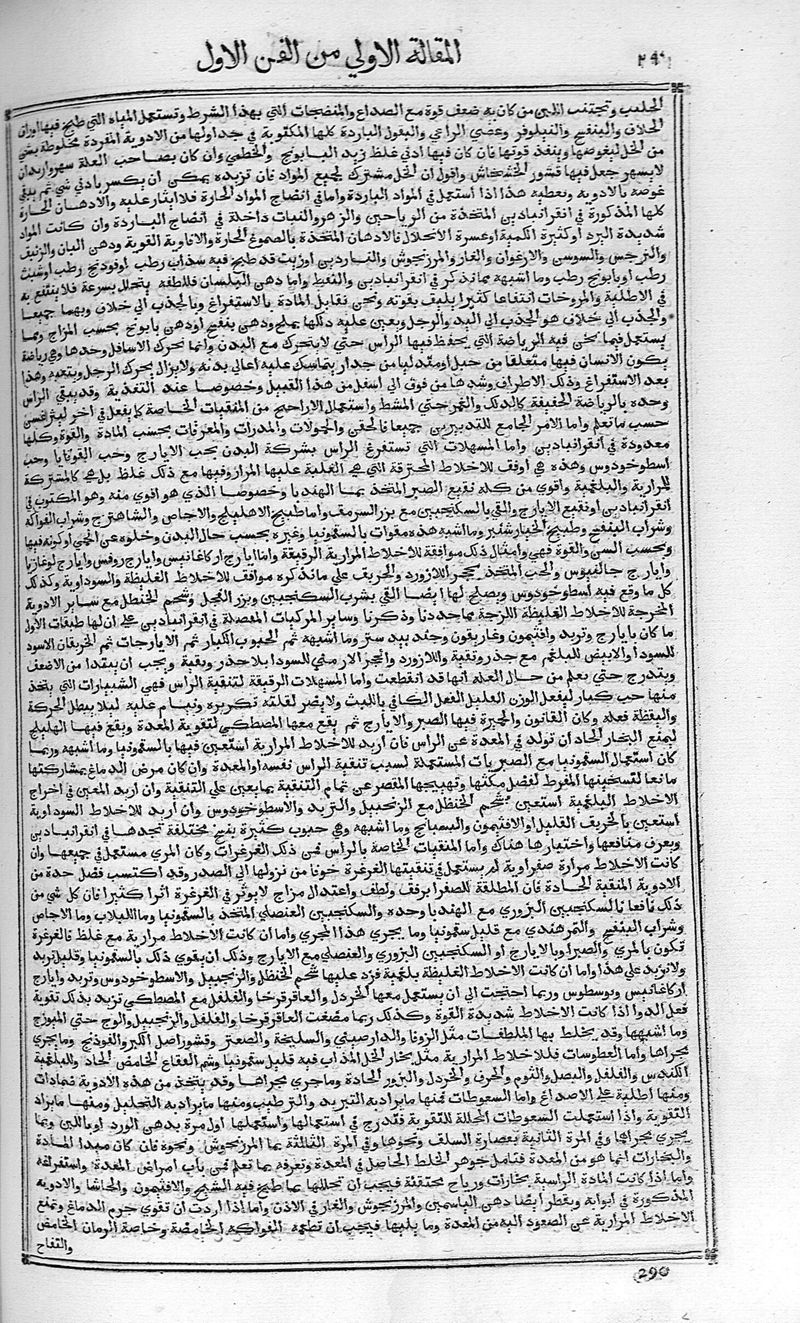 ٢٩٠ المقالة الاولي من الفن الاول
الحليب وتجتنب اللبن من كان به ضعف قوة مع الصداع والمنضجات التي بهذا الشرط وتستعمل المياه التي طبخ فيها اوراق
الخلاف والبنفسج والنيلوفر وعصي الراعي والبقول الباردة كلها المكتوبة في جداولها من الادوية المفردة مخلوطة بشي
من الخل ليغوصها وينفذ قوتها فان كان فيها ادني غلظ زيد البابونج والخطمي وان كان بصاحب العلة سهر واريد ان
لا يسهر جعل فيها قشور الخشخاش واقول ان الخل مشترك لجميع المواد فان تزيده يمكن ان يكسر بادني شي ثم يبقي
غوصه بالادوية وتعطيه هذا اذا استعمل في المواد الباردة واما في انضاج المواد الحارة فلا ايثار عليه والادهان الحارة
كلها المذكورة في انقراباديـن المتخذة من الرياحين والزهر والنبات داخلة في انضاج الباردة وان كانت المواد
شديدة البرد او كثيرة الكمية او عسرة الانحلال فالادهان المتخذة بالصموغ الحارة والافاوية القوية ودهن البان والزنبق
والنرجس والسوسن والاقحوان والغار والمرزنجوش والناردين او زيت قد طبخ فيه سذاب رطب او فوذنج رطب او شبث
رطب او بابونج رطب وما اشبهه مما نذكر في انقراباديـن والنفط واما دهن البلسان فللطفه يتحلل بسرعة فلا ينتفع به
في الاطلية والمروخات انتفاعا كثيرا يليق بقوته ونحن نقابل المادة بالاستفراغ وبالجذب الي خلاف وبهما جميعا
والجذب الي خلاف هو الجذب الي اليد والرجل ويعين عليه دلكها بملح ودهن بنفسج او دهن بابونج بحسب المزاج ومما
يستعمل فيما نحن فيه الرياضة التي يحفظ فيها الراس حتي لا يتحرك مع البدن وانما تحرك الاسافل وحدها وهي رياضة
يكون الانسان فيها متعلقا من حبل او متدليا من جدار يتماسك عليه اعالي بدنه ولا يزال يحرك الرجل ويتعبه وهذا
بعد الاستفراغ وذلك الاطراف وشدها من فوق الي اسفل من هذا القبيل وخصوصا عند التغذية وقد ينقي الراس
وحده بالرياضة الخفيفة كالدلك والغمر حتي المشط واستعمال الاراجيح من المنقيات الخاصة كما يفعل في اخر ليثرغس
حسب ما تعلم واما الامر الجامع للتدبيرين جميعا فالحقن والحمولات والمدرات والمعرقات بحسب المادة والقوة وكلها
معدودة في انقراباديـن واما المسهلات التي تستفرغ الراس بشركة البدن بحب الايارج وحب القوقايا وحب
اسطوخودوس وهذه هي اوفق للاخلاط المحترقة التي هي الغلبة عليها المرار وفيها مع ذلك غلظ بل هي كالمشتركة
للمرارية والبلغمية واقوي من كله نقيع الصبر المتخذ بما الهنديا وخصوصا الذي هو اقوي منه وهو المكتوب في
انقراباديـن او نقيع الايارج والقي بالسكنجبين مع بزر السرمق واما طبيخ الاهليلج والاجاص والشاهترج وشراب الفواكه
وشراب البنفسج وطبيخ الخيارشنبر وما اشبه هذه مقوات بالسقمونيا وغيره بحسب حال البدن وخلوه عن الحمي او كونه فيها
وبحسب السن والقوة فهي وامثال ذلك موافقة للاخلاط المرارية الرقيقة واما ايارج اركاغانيس وايارج روفس وايارج لوغاذيا
وايارج جالينوس والحب المتخذ بحجر اللازورد والخربف علي ما نذكره موافق للاخلاط الغليظة والسوداوية وكذلك
كل ما وقع فيه اسطوخودوس ويصلح لها ايضا القي بشرب السكنجبين وبزر الفجل وشحم الحنظل مع ساير الادوية
المخرجة للاخلاط الغليظة اللزجة مما حددنا وذكرنا وساير المركبات المفصلة في انقراباديـن علي ان لها طبقات الاول
ما كان بايارج وتربد وافتيمون وغاريقون وجندبيدستر وما اشبهه ثم الحبوب الكبار ثم الايارجات ثم الخربقان الاسود
للسودا والابيض للبلغم مع حذر وتقية واللازورد والحجر الارمني للسودا بلا حذر وبقية ويجب ان يبتدا من الاضعف
ويتدرج حتي يعلم من حال العلة انها قد انقطعت واما المسهلات الرقيقة لتنقية الراس فهي الشبيارات التي يتخذ
منها حب كبار ليفعل الوزن القليل الفعل الكافي باللبث ولا يضر لقلته تكريره وينام عليه ليلا يبطل الحركة
واليقظة فعله وكان القانون والخيرة فيها الصبر والايارج ثم يقع معها المصطكي لتقوية المعدة ويقع فيها الهليلج
ليمنع البخار الحاد ان تولد في المعدة عن الراس فان اريد للاخلاط المرارية استعين فيها بالسقمونيا وما اشبهه وربما
كان استعمال السقمونيا مع الصبريات المستعملة لسبب تنقية الراس نفسه او المعدة وان كان مرض الدماغ بمشاركتها
مانعا لتسخينها المفرط لفضل مكثها وتهييجها المقصر عن تمام التنقية بما يعين علي التنقية وان اريد المعين في اخراج
الاخلاط البلغمية استعين بشحم الحنظل مع الزنجبيل والتربد والاسطوخودوس وان اريد للاخلاط السوداوية
استعين بالخربف القليل او الافتيمون والبسبايج وما اشبهه وهي حبوب كثيرة بنسخ مختلفة تجدها في انقراباديـن
ويعرف منافعها واختيارها هناك واما المنقيات الخاصة بالراس فمن ذلك الغرغرات وكان المري مستعمل في جميعها وان
كانت الاخلاط مرارة صفراوية لم يستعمل في تنقيتها الغرغرة خوفا من نزولها الي الصدر وقد اكتسب فضل حدة من
الادوية المنقية الحادة فان المطلقة للصفرا برفق ولطف واعتدال مزاج لا يوثر في الغرغرة اثرا كثيرا فان كل شي من
ذلك نافعا فالسكنجبين البزوري مع الهنديا وحده والسكنجبين العنصلي المتخذ بالسقمونيا وما اللبلاب وما الاجاص
وشراب البنفسج والتمرهندي مع قليل سقمونيا وما يجري هذا المجري واما ان كانت الاخلاط مرارية مع غلظ فالغرغرة
تكون بالمري والصبر او بالايارج او السكنجبين البزوري والعنصلي مع الايارج وذلك ان يقوي ذلك بالسقمونيا وقليل تربد
ولا تزيد علي هذا واما ان كانت الاخلاط الغليظة بلغمية فزد عليها شحم الحنظل والزنجبيل والاسطوخودوس وتربد وايارج
اركاغانيس وبوسطوس وربما احتجت الي ان يستعمل معها الخردل والعاقرقرحا والفلفل مع المصطكي تزيد بذلك تقوية
فعل الدوا اذا كانت الاخلاط شديدة القوة وكذلك ربما مضغت العاقرقرحا والفلفل والزنجبيل والوج حتي الميوبزج
وما اشبهها وقد يخلط بها الملطفات مثل الزوفا والدارصيني والسليخة والصعتر وقشور اصل الكبر والفوذنج وما يجري
مجراها واما العطوسات فللاخلاط المرارية مثل بخار الخل المذاب فيه قليل سقمونيا وشم الفقاع الحامض الحاد وللبلغمية
الكندس والفلفل والبصل والثوم والحرف والخردل والبزور الحادة وما جري مجراها وقد يتخذ من هذه الادوية ضمادات
ومنها اطلية علي الاصداغ واما السعوطات فمنها ما يراد به التبريد والترطيب ومنها ما يراد به التحليل ومنها ما يراد
التقوية واذا استعملت السعوطات المحللة للتقوية فتدرج في استعمالها واستعملها اول مرة بدهن الورد او باللبن وما
يجري مجراها وفي المرة الثانية بعصارة السلق ونحوها وفي المرة الثالثة بما المرزنجوش ونحوه فان كان مبدا المادة
والبخارات انما هو من المعدة فتامل جوهر الخلط الحاصل في المعدة وتعرفه بما تعلم في باب امراض المعدة واستفرغه
واما اذا كانت المادة الراسية بخارات ورياح محتقنة فيجب ان تحللها بما طبخ فيه الشيح والافتيمون والحاشا والادوية
المذكورة في ابوابه ويقطر ايضا دهن الياسمين والمرزنجوش والغار في الاذن واما اذا اردت ان تقوي جرم الدماغ وتمنع
الاخلاط المرارية عن الصعود اليه من المعدة وما يليها فيجب ان تطعمه الفواكه الحامضة وخاصة الرمان الحامض
والتفاح
290